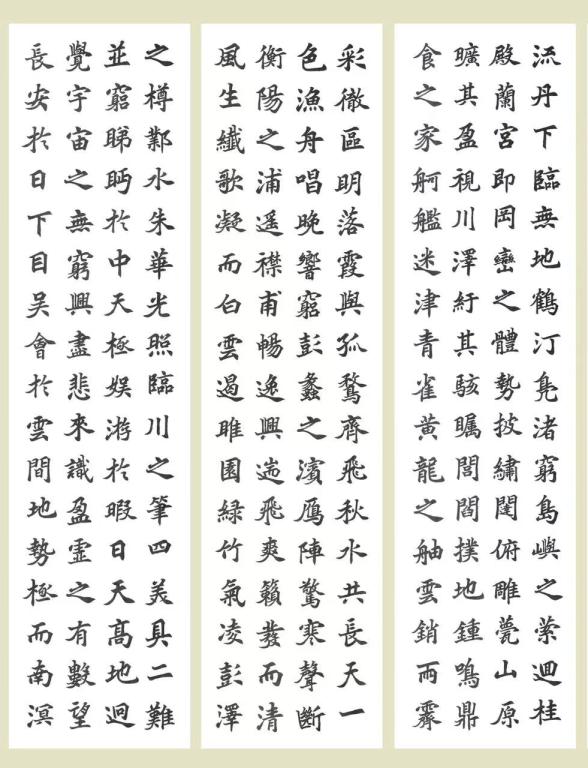 流丹下臨無地鶴汀鳧渚窮島嶼之縈迴桂
殿蘭宮即岡巒之體勢披繡闥俯雕甍山原
曠其盈視川澤紆其駭矚閭閻撲地鍾鳴鼎
食之家舸艦迷津青雀黃龍之舳雲銷雨霽
彩徹區明落霞與孤鶩齊飛秋水共長天一
色漁舟唱晚響窮彭蠡之濱鴈陣驚寒聲斷
衡陽之浦遥襟甫暢逸興遄飛爽籟發而清
風生纖歌凝而白雲遏睢園綠竹氣凌彭澤
之樽鄴水朱華光照臨川之筆四美具二難
並窮睇眄於中天極娛游於暇日天高地迥
覺宇宙之無窮興盡悲來識盈虛之有數望
長安於日下目吳會於雲間地勢極而南溟